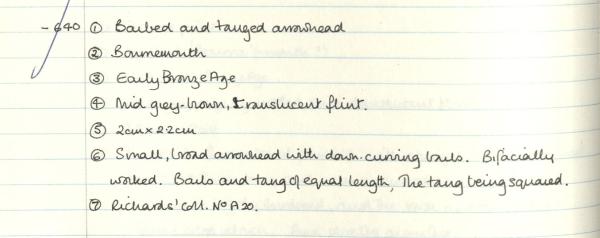 - 640 ① Barbed and tanged arrowhead
② Bournemouth
③ Early Bronze Age
④ Mid grey-brown, translucent flint.
⑤ 2cm x 2.2cm
⑥ Small, broad arrowhead with down-curving barbs. Bifacially
worked. Barbs and tang of equal length, The tang being squared.
⑦ Richards' Coll. No A20.